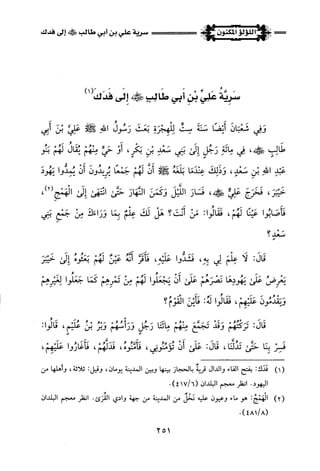 اللؤلؤ المكنون
سرية علي بن أبي طالب ﷺ إلى فدك
سَرِيَّةُ عَلِيِّ بْنِ أَبِي طَالِبٍ ﷺ إِلَى فَدَكَ(١)
وَفِي شَعْبَانَ أَيْضًا سَنَةَ سِتٍّ لِلْهِجْرَةِ بَعَثَ رَسُولُ اللهِ ﷺ عَلِيَّ بْنَ أَبِي
طَالِبٍ ﷺ، فِي مِائَةِ رَجُلٍ إِلَى بَنِي سَعْدِ بْنِ بَكْرٍ، أَوْ حَيٍّ مِنْهُمْ يُقَالُ لَهُمْ بَنُو
عَبْدِ اللهِ بْنِ سَعْدٍ، وَذَلِكَ عِنْدَمَا بَلَغَهُ ﷺ أَنَّ لَهُمْ جَمْعًا يُرِيدُونَ أَنْ يُمِدُّوا يَهُودَ
خَيْبَرَ، فَخَرَجَ عَلِيٌّ ﷺ، فَسَارَ اللَّيْلَ وَكَمَنَ النَّهَارَ حَتَّى انْتَهَى إِلَى الْهَمَجِ(٢)،
فَأَصَابُوا عَيْنًا لَهُمْ، فَقَالُوا: مَنْ أَنْتَ؟ هَلْ لَكَ عِلْمٌ بِمَا وَرَاءَكَ مِنْ جَمْعِ بَنِي
سَعْدٍ؟
قَالَ: لَا عِلْمَ لِي بِهِ، فَشَدُّوا عَلَيْهِ، فَأَقَرَّ أَنَّهُ عَيْنٌ لَهُمْ بَعَثُوهُ إِلَى خَيْبَرَ
يَعْرِضُ عَلَى يَهُودِهَا نَصْرَهُمْ عَلَى أَنْ يَجْعَلُوا لَهُمْ مِنْ تَمْرِهِمْ كَمَا جَعَلُوا لِغَيْرِهِمْ
وَيَقْدُمُونَ عَلَيْهِمْ، فَقَالُوا لَهُ: فَأَيْنَ الْقَوْمُ؟
قَالَ: تَرَكْتُهُمْ وَقَدْ تَجَمَّعَ مِنْهُمْ مِائَتَا رَجُلٍ وَرَأْسُهُمْ وَبَرُ بْنُ عُلَيْمٍ، قَالُوا:
فَسِرْ بِنَا حَتَّى تَدُلَّنَا، قَالَ: عَلَى أَنْ تُؤَمِّنُونِي، فَأَمَّنُوهُ، فَدَلَّهُمْ، فَأَغَارُوا عَلَيْهِمْ،
(١) فَدَك: بفتح الفاء والدال قريةٌ بالحجاز بينها وبين المدينة يومان، وقيل: ثلاثة، وأهلها من
اليهود. انظر معجم البلدان (٤١٧/٦).
(٢) الْهَمَجُ: هو ماء وعيون عليه نَخْلٌ من المدينة من جهة وادي القُرَى. انظر معجم البلدان
(٤٨١/٨).
٢٥١